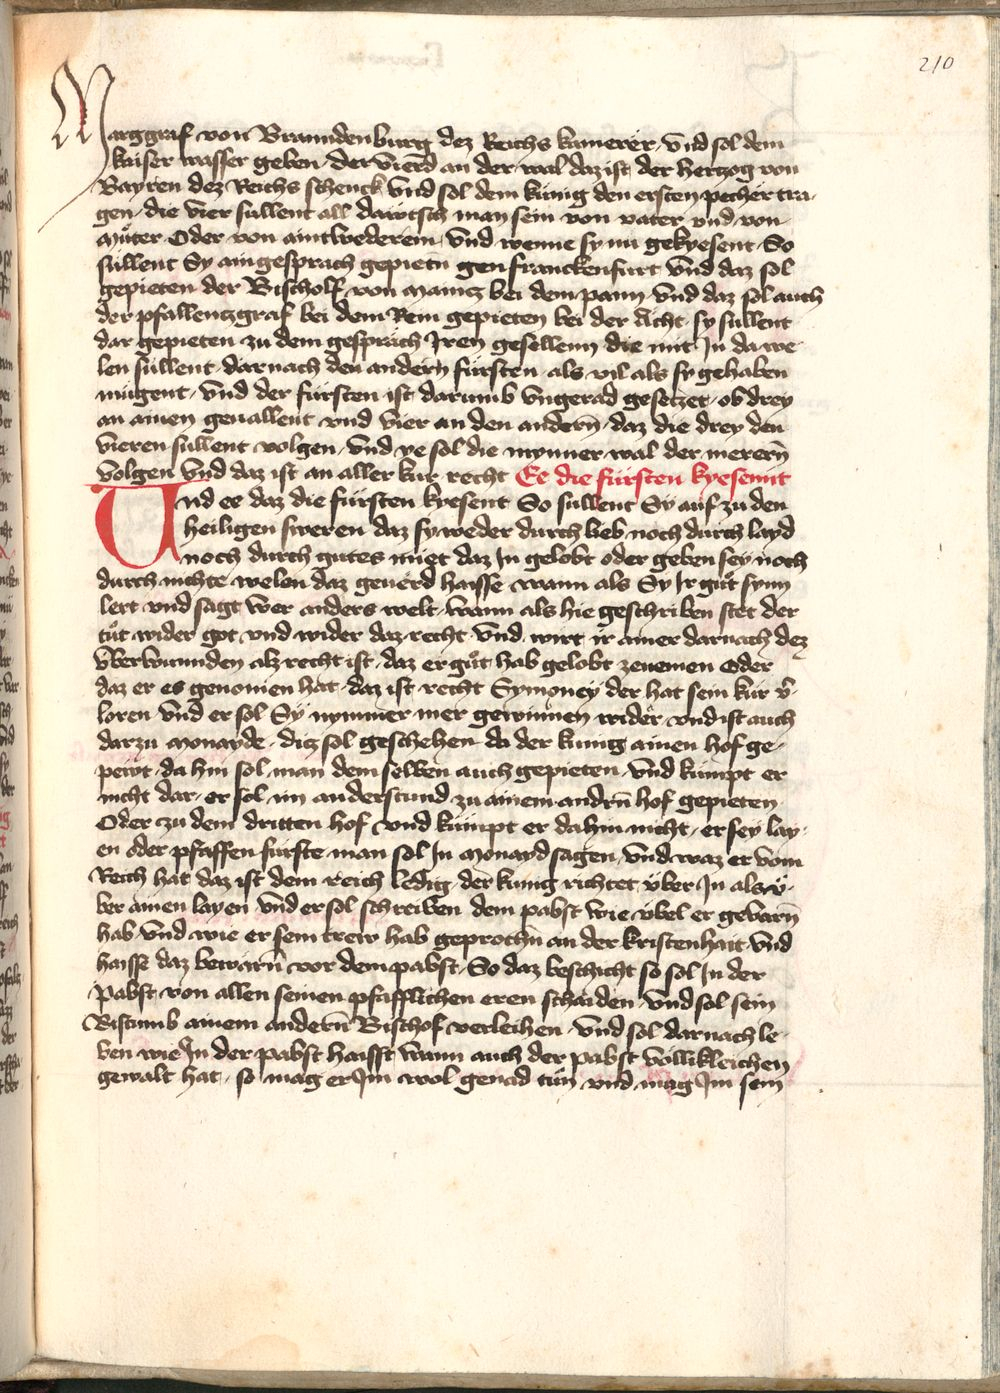 210
Marggraf von Branndenburg dez Reichs kamerer, vnd sol dem
kaiser wasser geben. der vierd an der wal daz ist der hertzog von
Bayren dez Reichs schenck vnd sol dem kunig den ersten pecher tra-
gen. die vier sullent all dawtsch man sein von vater vnd von
muter Oder von aintwederem, vnd wenne sy nu gekyesent So
sullent Sy ain gesprach gepieten gen franckenfurt vnd daz sol
gepieten der Bischolf von maintz bei dem pann vnd daz sol auch
der pfallentzgraf bei dem Rein gepieten bei der Acht. sy sullent
dar gepieten zu dem gespräch Iren gesellenn die mit In da we-
len sullent. darnach den andern fürsten als vil als sy gehaben
mügent. vnd der fürsten ist darumb vngerad gesetzet. ob drey
an ainen geuallent vnd vier an den andern̄ daz die drey den
vieren sullent volgen. vnd ye sol die mynner wal der merern̄
volgen vnd daz ist an aller kur recht Ee die fürsten kyesennt
Vnd ee daz die fürsten kyesent So sullent Sy auf zu den
heiligen sweren daz sy weder durch lieb noch durch layd
noch durch gutes miet daz In gelobt oder geben sey noch
durch nichte welen daz geuerd haisse wann als Sy Ir gůt synn
lert vnd sagt wer anders welt wann als hie geschriben stet der
tůt wider got vnd wider daz recht vnd wirt ir ainer darnach dez
vberwunnden alz recht ist, daz er gůt hab gelobt zenemen Oder
daz er es genomen hat. daz ist recht Symoney der hat sein kur v̄-
loren vnd er sol Sy nymmer mer gewinnen wider vnd ist auch
darzu monayde. ditz sol geschehen da der kunig ainen hof ge-
pewt. da hin sol man dem selben auch gepieten vnd kumpt er
nicht dar. er sol im anderstund zu ainem andrn̄ hof gepieten.
Oder zu dem dritten hof vnd kumpt er dahin nicht. er sey lay-
en oder pfaffen fürste man sol In monayd sagen, vnd waz er vom
Reich hat daz ist dem reich ledig. der kunig richtet vber In als v̈-
ber ainen layen vnd er sol schreiben dem pabst wie vbel er gebarn̄
hab vnd wie er sein trew hab geprochn̄ an der kristenhait vnd
haisse daz bewarn̄ vor dem pabst. So daz beschicht so sol In der
Pabst von allen seinen pfäfflichen eren schaiden vnd sol sein
Bistumb ainem andern̄ Bischof verleihen vnd sol darnach le-
ben wie In der pabst haisst wann auch der pabst vollikleichen
gewalt hat. so mag er Im wol genad tun vnd mag Im sein